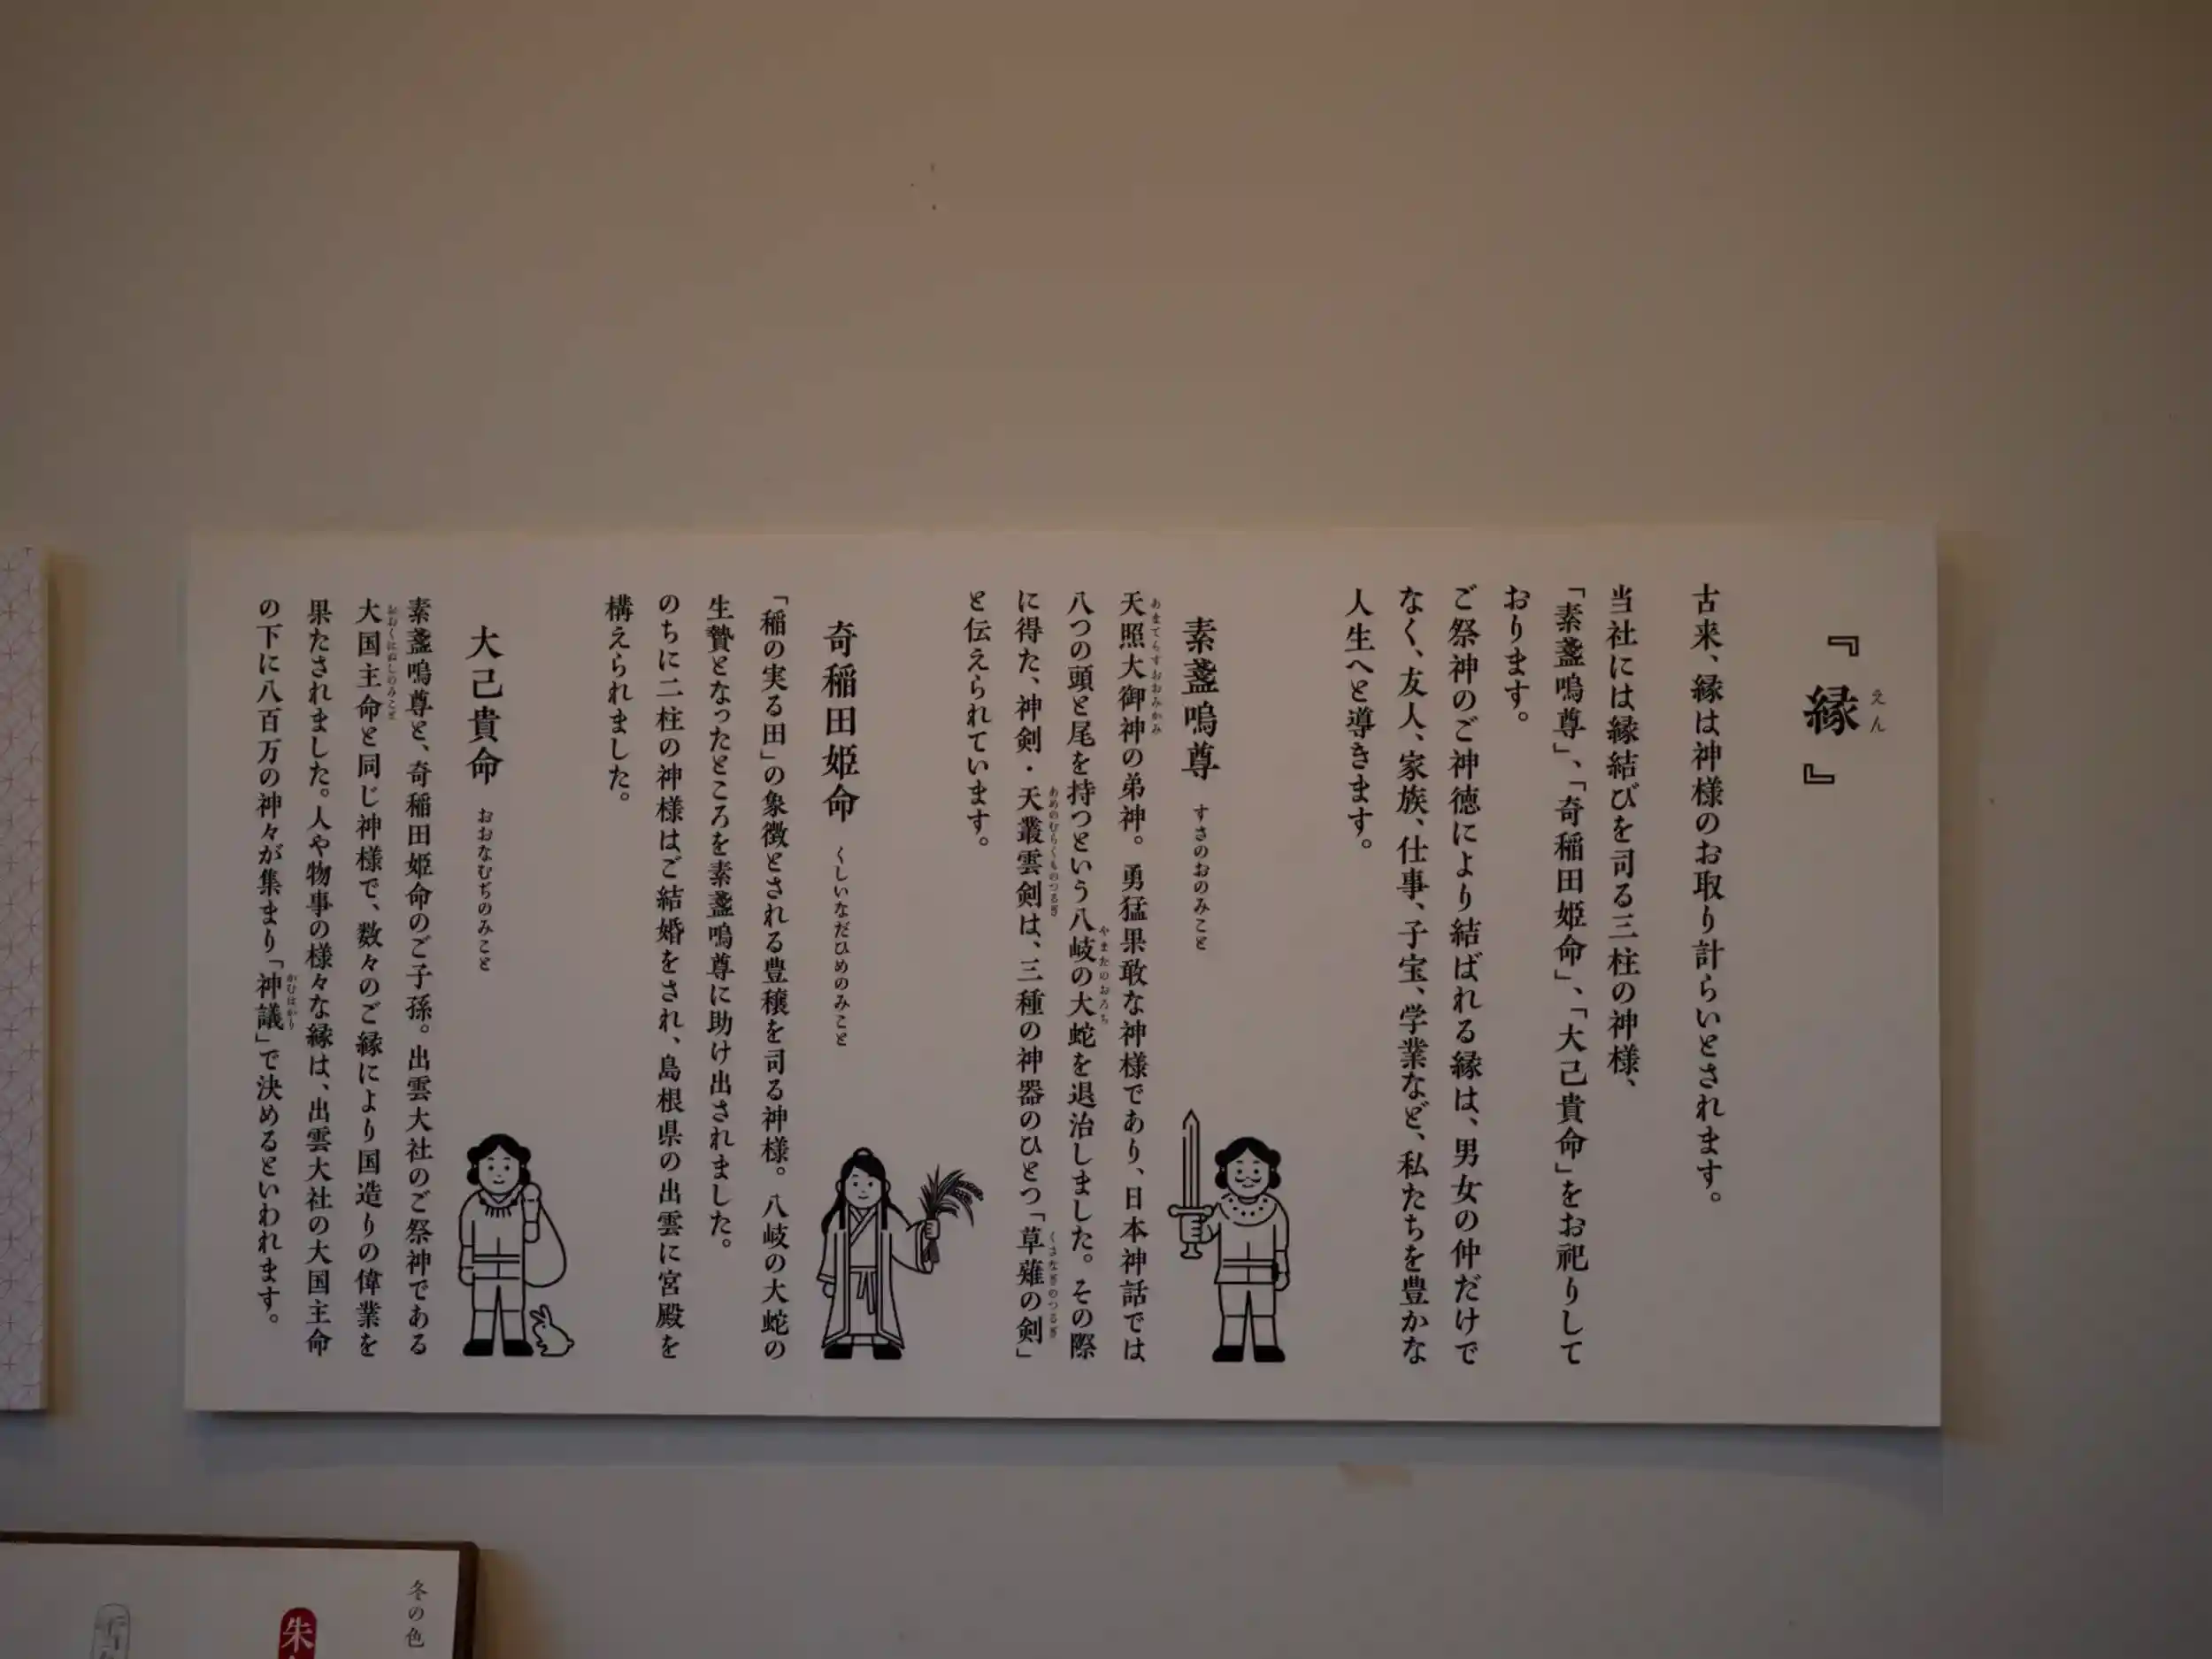 『縁』
えん
古来、縁は神様のお取り計らいとされます。
当社には縁結びを司る三柱の神様、
「素盞嗚尊」、「奇稲田姫命」、「大己貴命」をお祀りして
おります。
ご祭神のご神徳により結ばれる縁は、男女の仲だけで
なく、友人、家族、仕事、子宝、学業など、私たちを豊かな
人生へと導きます。
素盞嗚尊 すさのおのみこと
あまてらすおおみかみ
天照大御神の弟神。勇猛果敢な神様であり、日本神話では
やまたのおろち
八つの頭と尾を持つという八岐の大蛇を退治しました。その際
あめのむらくものつるぎ くさなぎのつるぎ
に得た、神剣・天叢雲剣は、三種の神器のひとつ「草薙の剣」
と伝えられています。
奇稲田姫命 くしいなだひめのみこと
「稲の実る田」の象徴とされる豊穣を司る神様。八岐の大蛇の
生贄となったところを素盞嗚尊に助け出されました。
のちに二柱の神様はご結婚をされ、島根県の出雲に宮殿を
構えられました。
大己貴命 おおなむちのみこと
素盞嗚尊と、奇稲田姫命のご子孫。出雲大社のご祭神である
おおくにぬしのみこと
大国主命と同じ神様で、数々のご縁により国造りの偉業を
果たされました。人や物事の様々な縁は、出雲大社の大国主命
かむはかり
の下に八百万の神々が集まり「神議」で決めるといわれます。
冬の色
朱